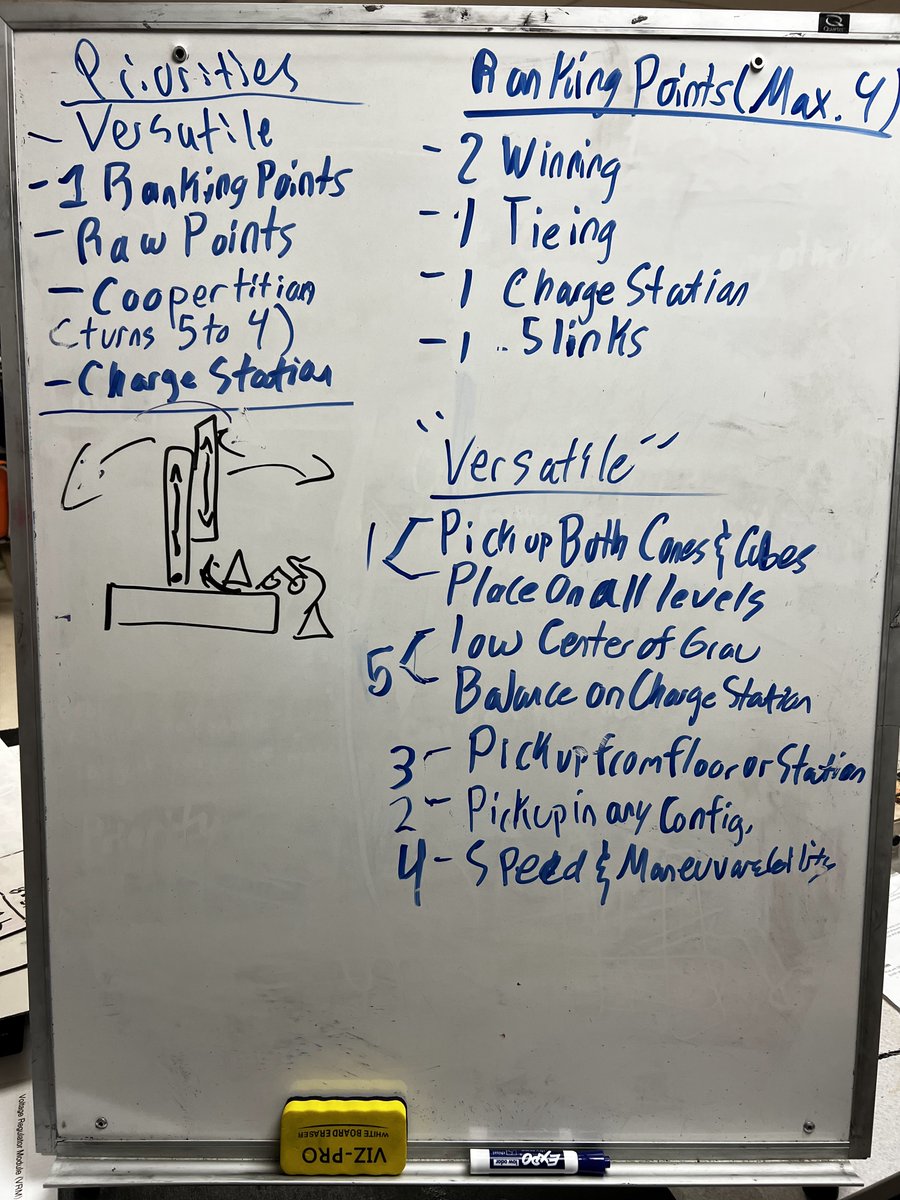 Priorities
- Versatile
- 1 Ranking Points
- Raw Points
- Coopertition
(turns 5 to 4)
- Charge Station
Ranking Points (Max. 4)
- 2 Winning
- 1 Tieing
- 1 Charge Station
- 1 5 links
"Versatile"
1 Pick up Both Cones & Cubes
Place On all levels
5 low Center of Grav
Balance on Charge Station
3 - Pick up from floor or Station
2 - Pickup in any Config.
4 - Speed & Maneuvarability
Quartet
VIZ-PRO
WHITE BOARD ERASER
EXPO
low odor
Voltage Regulator Module (VRM)